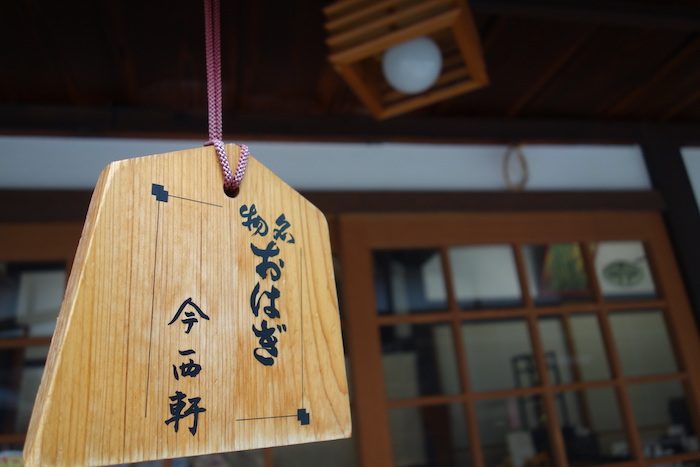 名物
おはぎ
今西軒